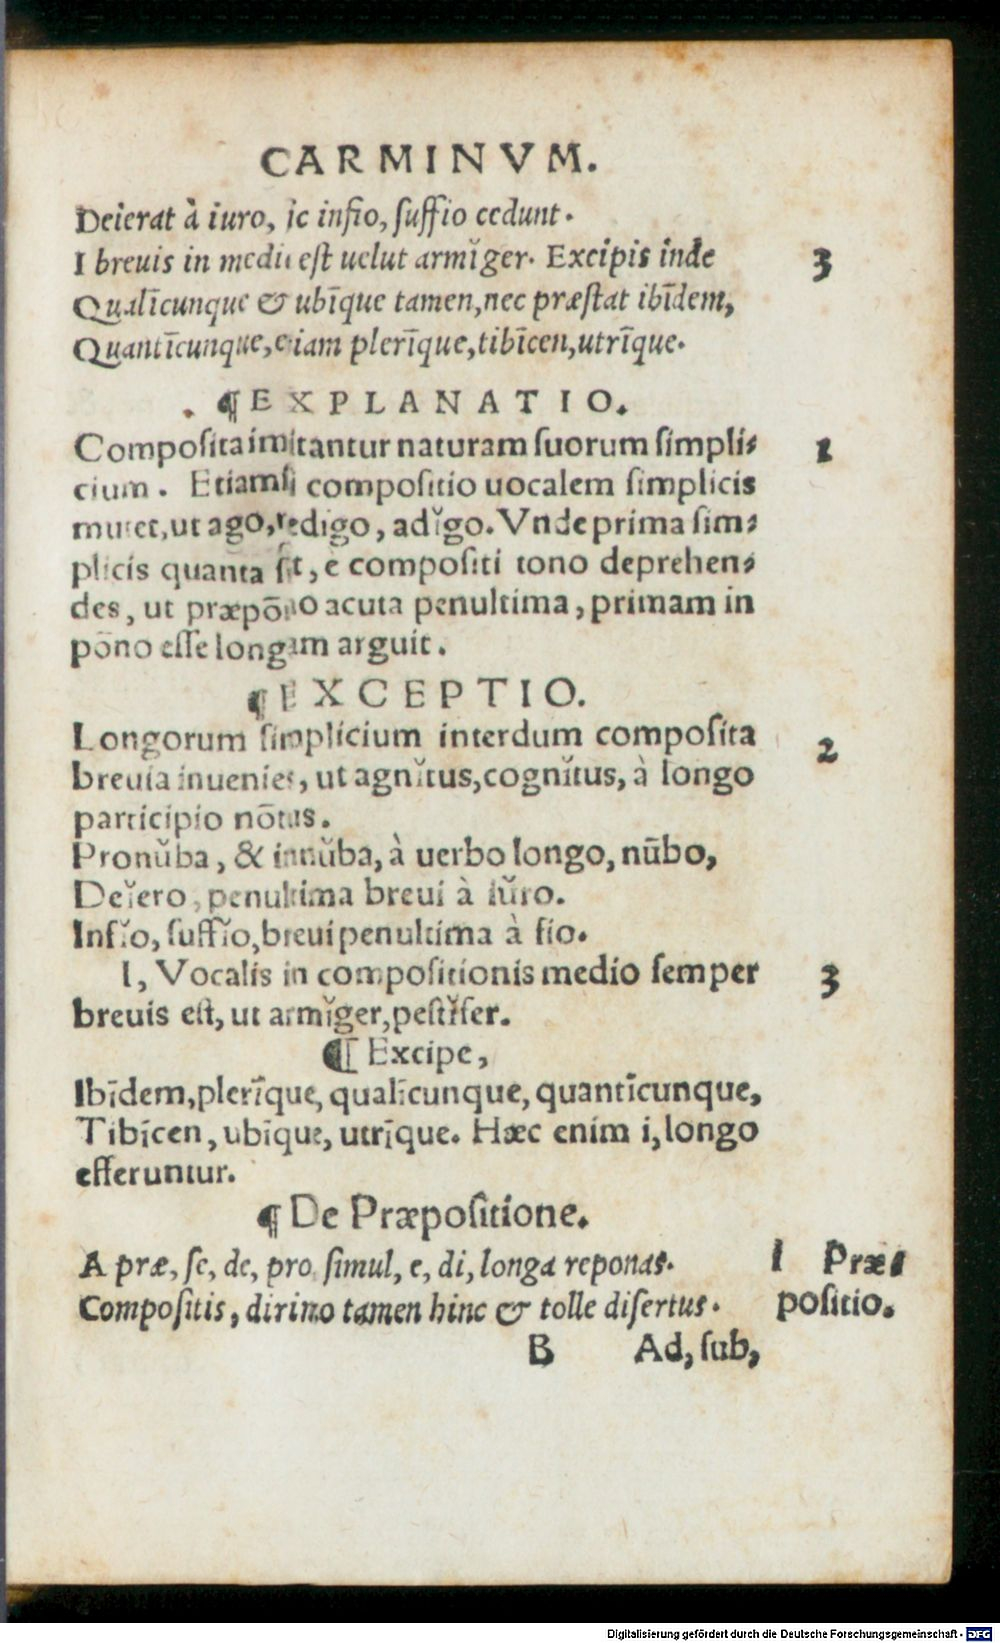 CARMINVM.
Deierat à iuro, ic infio, ſuffio cedunt.
I breuis in medii eſt uelut armĭger. Excipis inde 3
Qualīcunque & ubīque tamen, nec præſtat ibīdem,
Quantīcunque, etiam plerīque, tibīcen, utrīque.
¶ EXPLANATIO.
Compoſita imitantur naturam ſuorum ſimpli⸗ 1
cium. Etiamſi compoſitio uocalem ſimplicis
mutet, ut ago, redigo, adĭgo. Vnde prima ſim⸗
plicis quanta ſit, è compoſiti tono deprehen⸗
des, ut præpōno acuta penultima, primam in
pōno eſſe longam arguit.
¶ EXCEPTIO.
Longorum ſimplicium interdum compoſita 2
breuia inuenies, ut agnĭtus, cognĭtus, à longo
participio nōtus.
Pronŭba, & innŭba, à uerbo longo, nūbo,
Deĭero, penultima breui à iūro.
Infĭo, ſuffĭo, breui penultima à fio.
I, Vocalis in compoſitionis medio ſemper 3
breuis eſt, ut armĭger, peſtĭfer.
¶ Excipe,
Ibīdem, plerīque, qualīcunque, quantīcunque,
Tibīcen, ubīque, utrīque. Hæc enim i, longo
efferuntur.
¶ De Præpoſitione.
A præ, ſe, de, pro ſimul, e, di, longa reponas. 1 Præ⸗
Compoſitis, dirimo tamen hinc & tolle diſertus. poſitio.
B Ad, ſub,
Digitalisierung gefördert durch die Deutsche Forschungsgemeinschaft - DFG